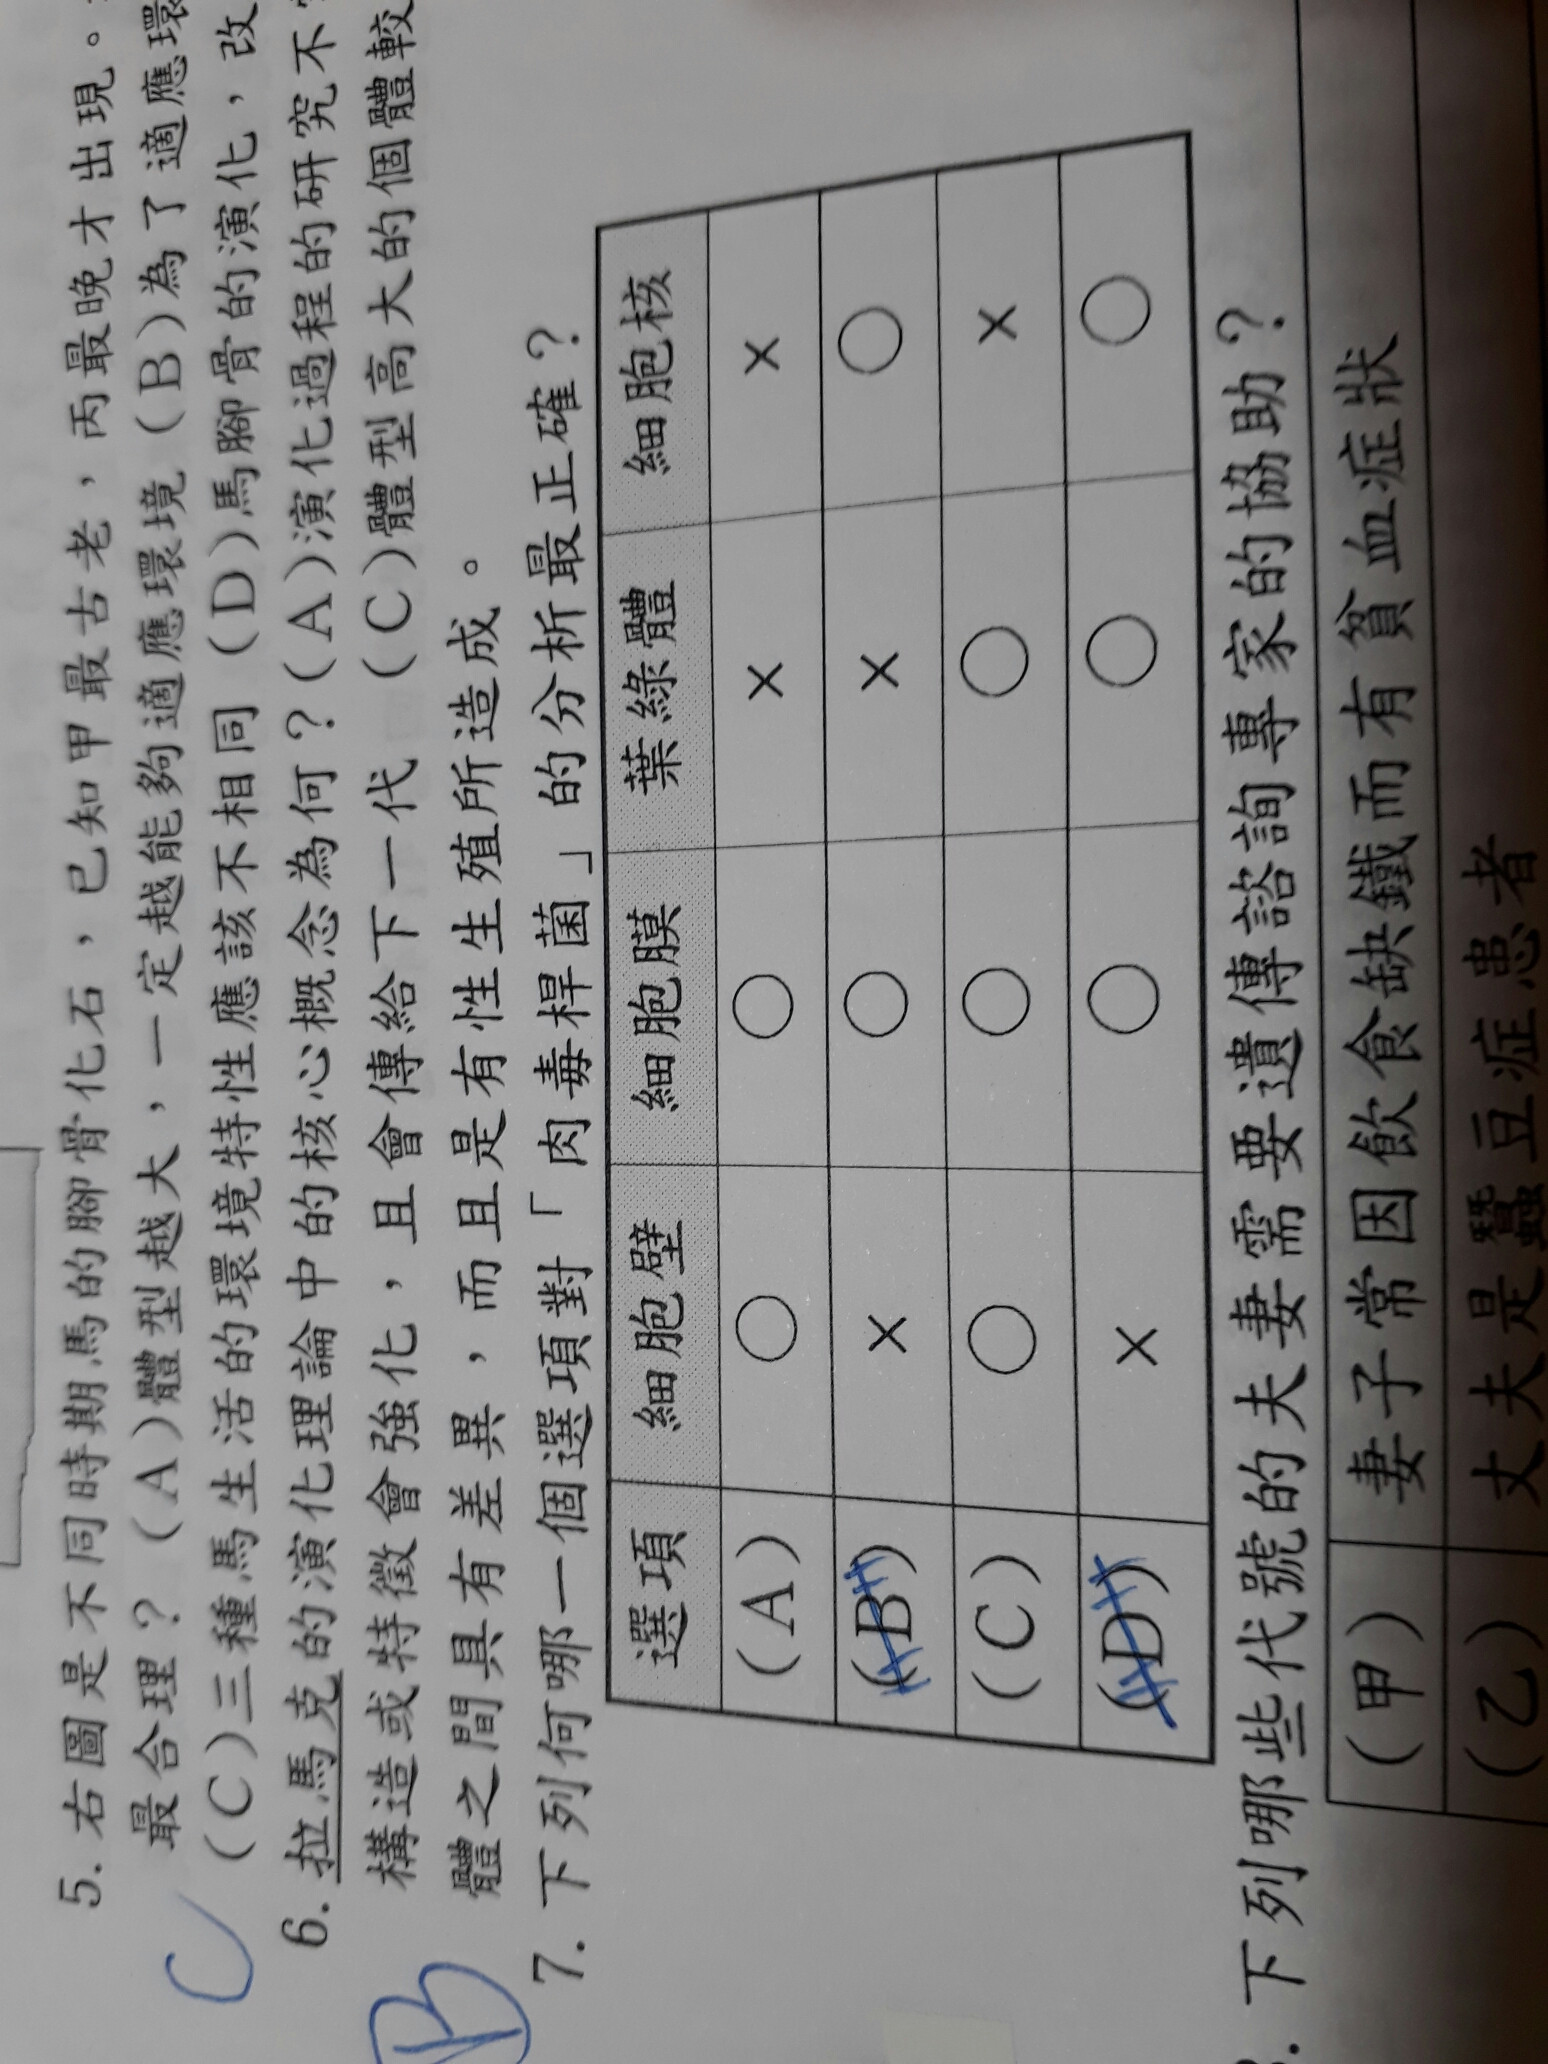 5. 右圖是不同時期馬的腳骨化石，已知甲最古老，丙最晚才出現。
最合理？（A）體型越大，一定越能夠適應環境（B）為了適應環
（C）三種馬生活的環境特性應該不相同（D）馬腳骨的演化，改
C
6. 拉馬克的演化理論中的核心概念為何？（A）演化過程的研究不
構造或特徵會強化，且會傳給下一代 （C）體型高大的個體較
體之間具有差異，而且是有性生殖所造成。
B
7. 下列何哪一個選項對「肉毒桿菌」的分析最正確？
選項 細胞壁 細胞膜 葉綠體 細胞核
（A） ○ ○ × ×
（B） × ○ × ○
（C） ○ ○ ○ ×
（D） × ○ ○ ○
下列哪些代號的夫妻需要遺傳諮詢專家的協助？
（甲） 妻子常因飲食缺鐵而有貧血症狀
（乙） 丈夫是蠶豆症患者